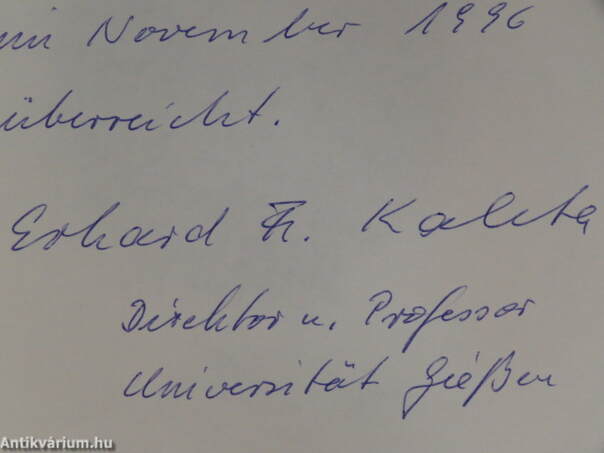 im November 1996
überreicht.
Erhard F. Kaleta
Direktor u. Professor
Universität Gießen
Antikvárium.hu